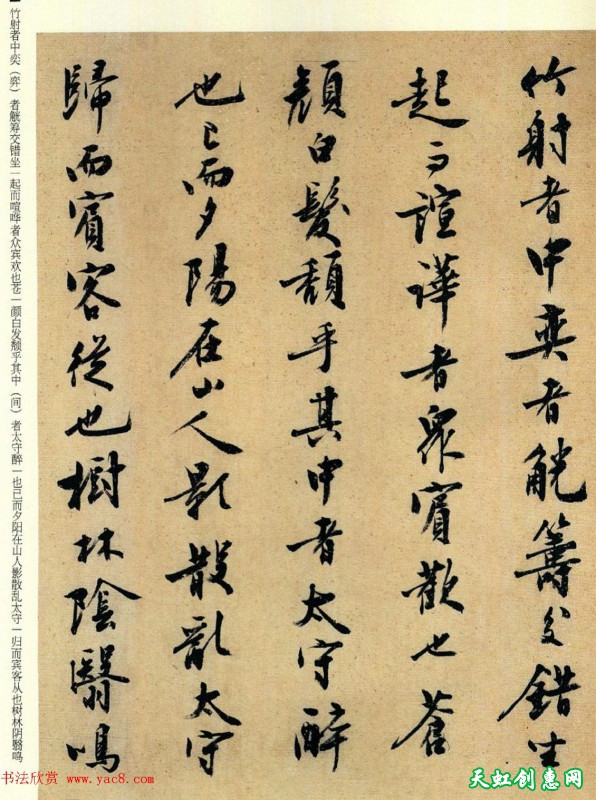 竹射者中奕者觥籌交錯坐
起而諠譁者衆賓歡也蒼
顏白髮頹乎其中者太守醉
也已而夕陽在山人影散亂太守
歸而賓客從也樹林陰翳鳴
竹射者中奕（弈）者觥筹交错坐一起而喧哗者众宾欢也苍一颜白发颓乎其中（间）者太守醉一也已而夕阳在山人影散乱太守一归而宾客从也树林阴翳鸣
书法欣赏 www.yac8.com
天虹创惠网